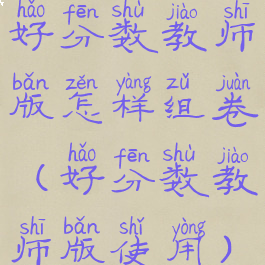 hǎo fēn shù jiào shī
好分数教师
bǎn zěn yàng zǔ juàn
版怎样组卷
hǎo fēn shù jiào
（好分数教
shī bǎn shǐ yòng
师版使用）